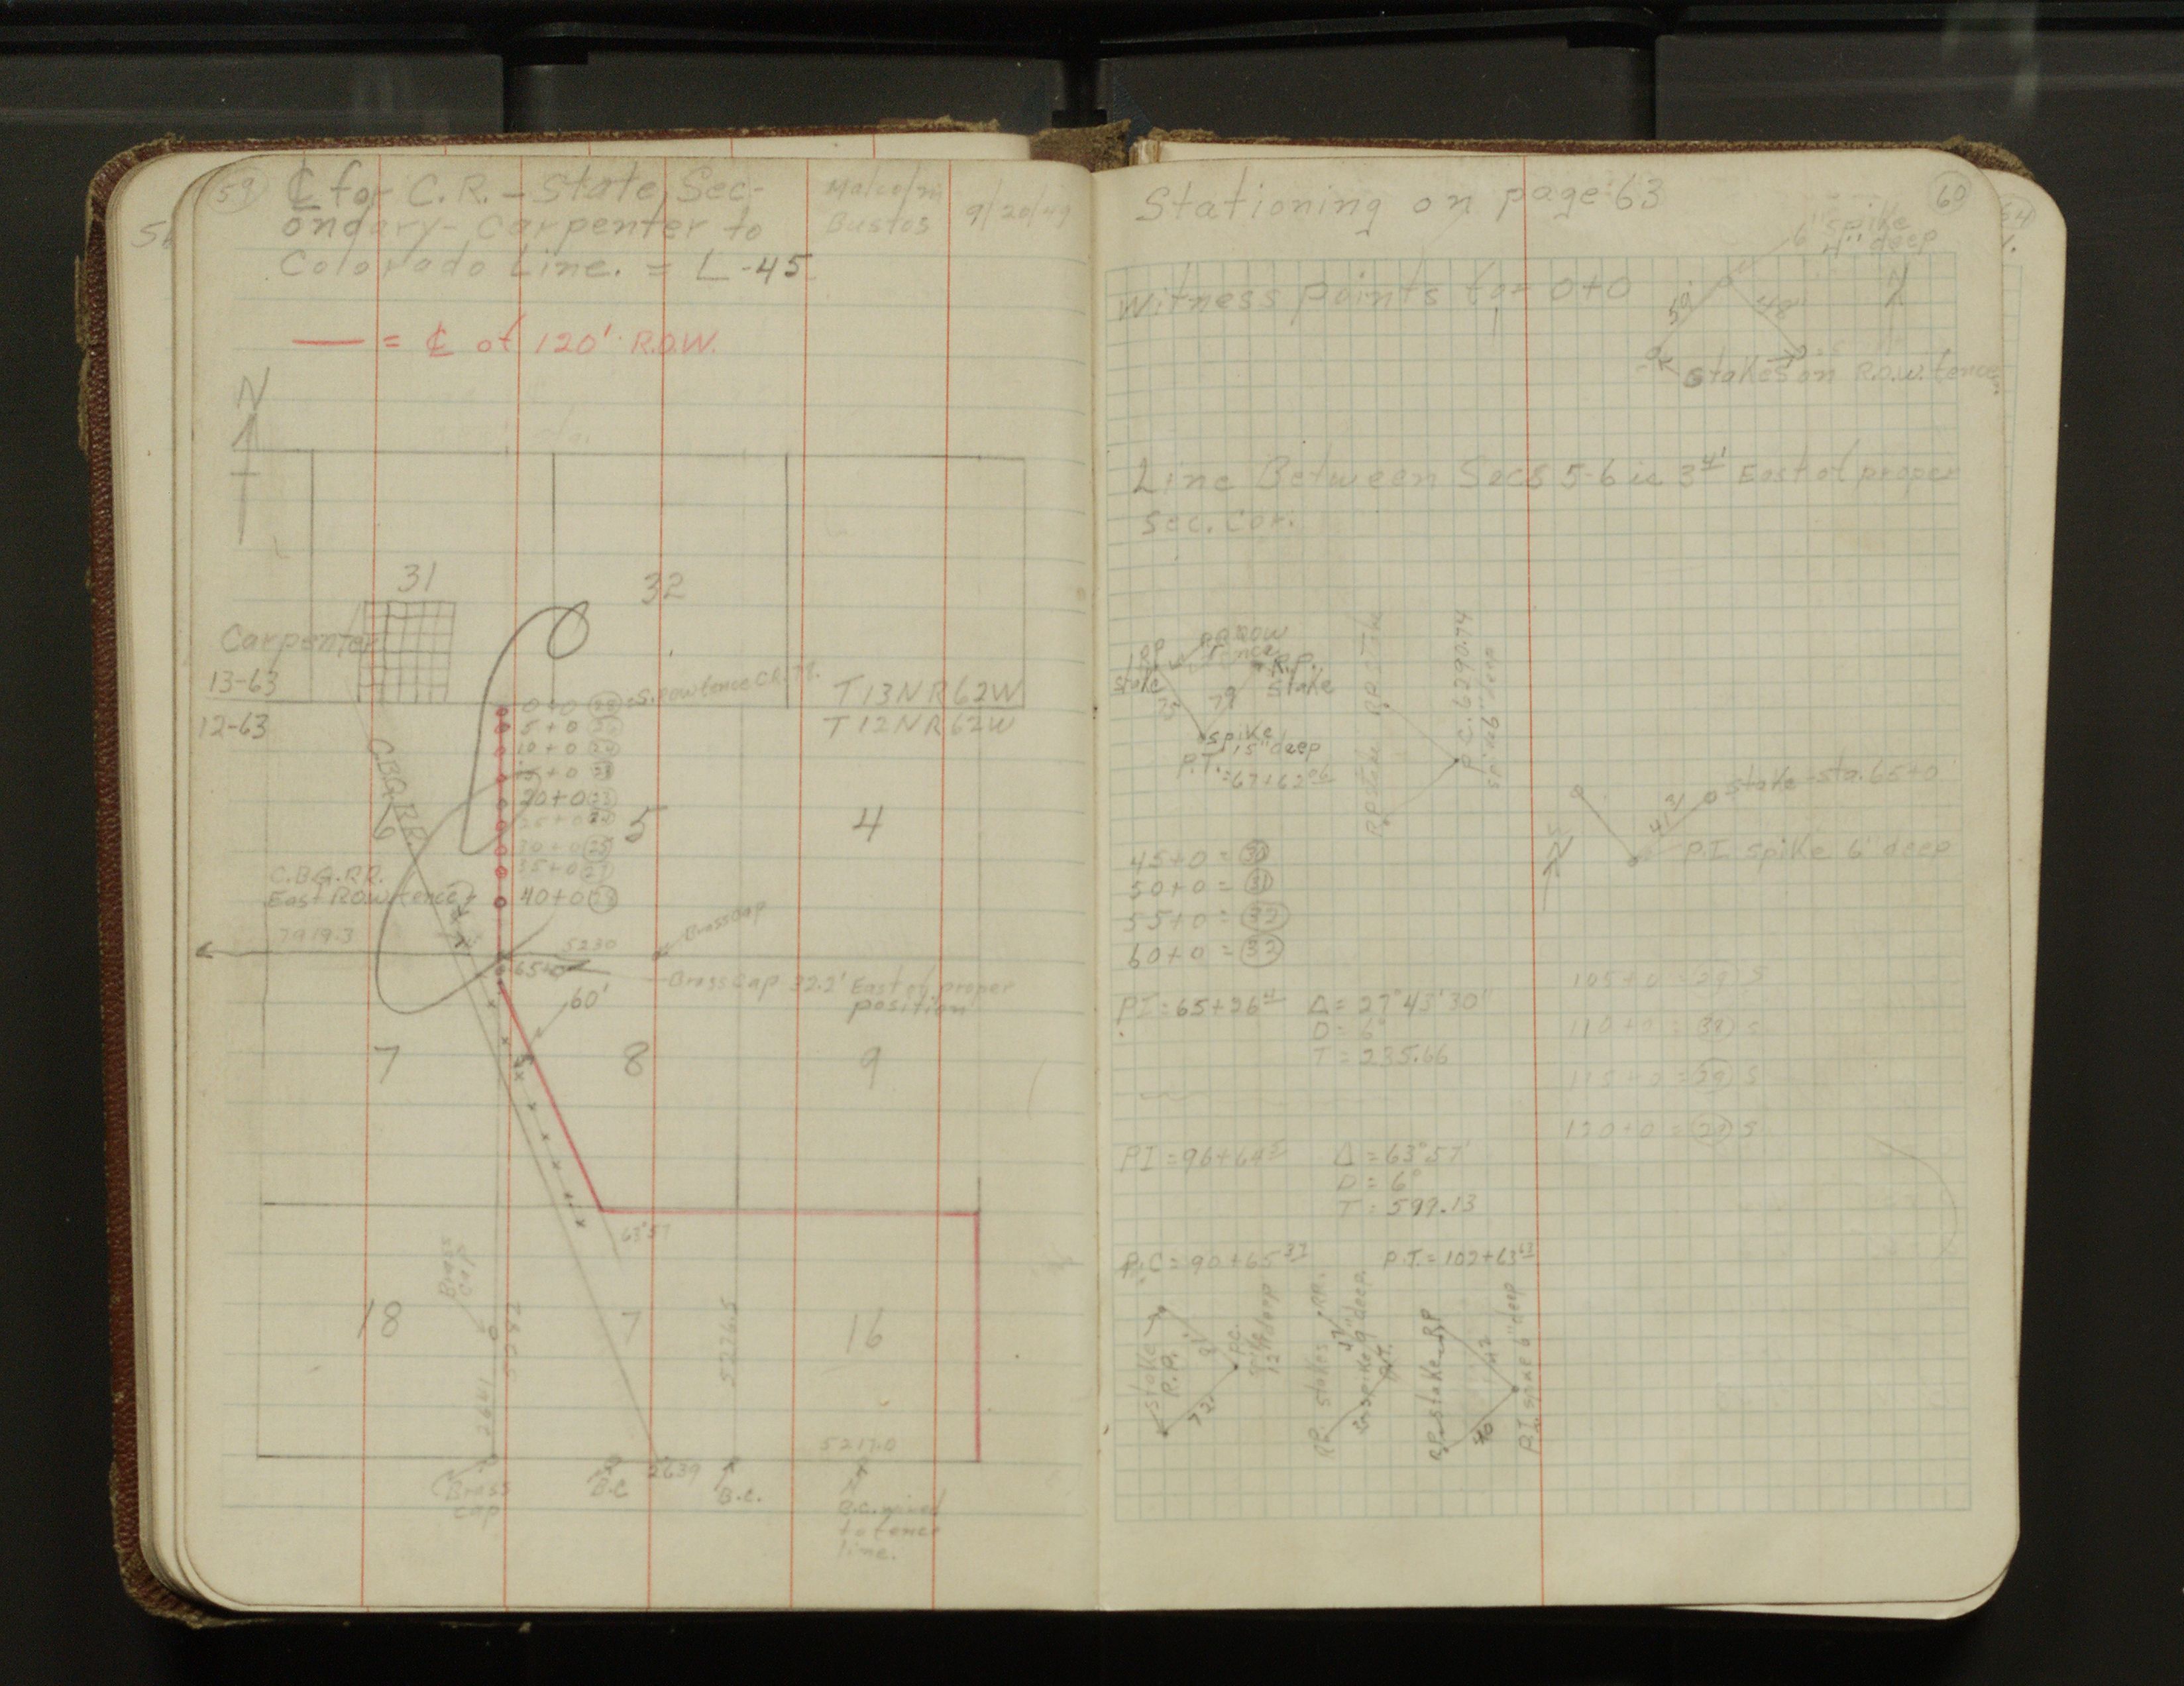 59
℄ for C.R. - State Sec-
ondary - Carpenter to
Colorado Line. = L-45
Malcolm
Bustos
9/20/49
= ℄ of 120' R.O.W.
N
31
32
Carpenter
13-63
12-63
T13N R62W
T12N R62W
0+0
S. ROW fence
5+0
10+0
15+0
20+0
25+0
30+0
35+0
40+0
C.B.Q.RR.
6
5
4
C.B.Q.RR.
East ROW fence
7919.3
5230
Brass Cap
65+0
Brass Cap 32.2' East of proper
position
60'
7
8
9
63°57'
Brass
cap
18
7
16
2641
5276.5
5217.0
Brass
cap
B.C
2639
B.C.
B.C.
to fence
line.
60
Stationing on page 63
6" spike
4" deep
Witness points for 0+0
N
Stakes on R.O.W. fence
Line Between Secs 5-6 is 3 4' East of proper
Sec. Cor.
R.P.
Stake
ROW
fence
R.P.
Stake
75
79
spike
15" deep
P.T. = 67+62 06
R.P. Stake
R.P. Stake
P.C. 6290.74
spike 6" deep
stake - sta. 65+0
41
P.I spike 6" deep
N
45+0 = 30
50+0 = 31
55+0 = 32
60+0 = 32
PI = 65+26 41
Δ = 27°43'30"
D = 6°
T = 235.66
105+0 = 29 S
110+0 = S
115+0 = 29 S
120+0 = S
PI = 96+64
Δ = 63°57'
D = 6°
T = 597.13
P.C = 90+65 37
P.T. = 102+63
stake
R.P.
P.C.
12" deep
R.P. stakes
spike 9" deep
R.P. stake R.P
P.T. spike 6" deep